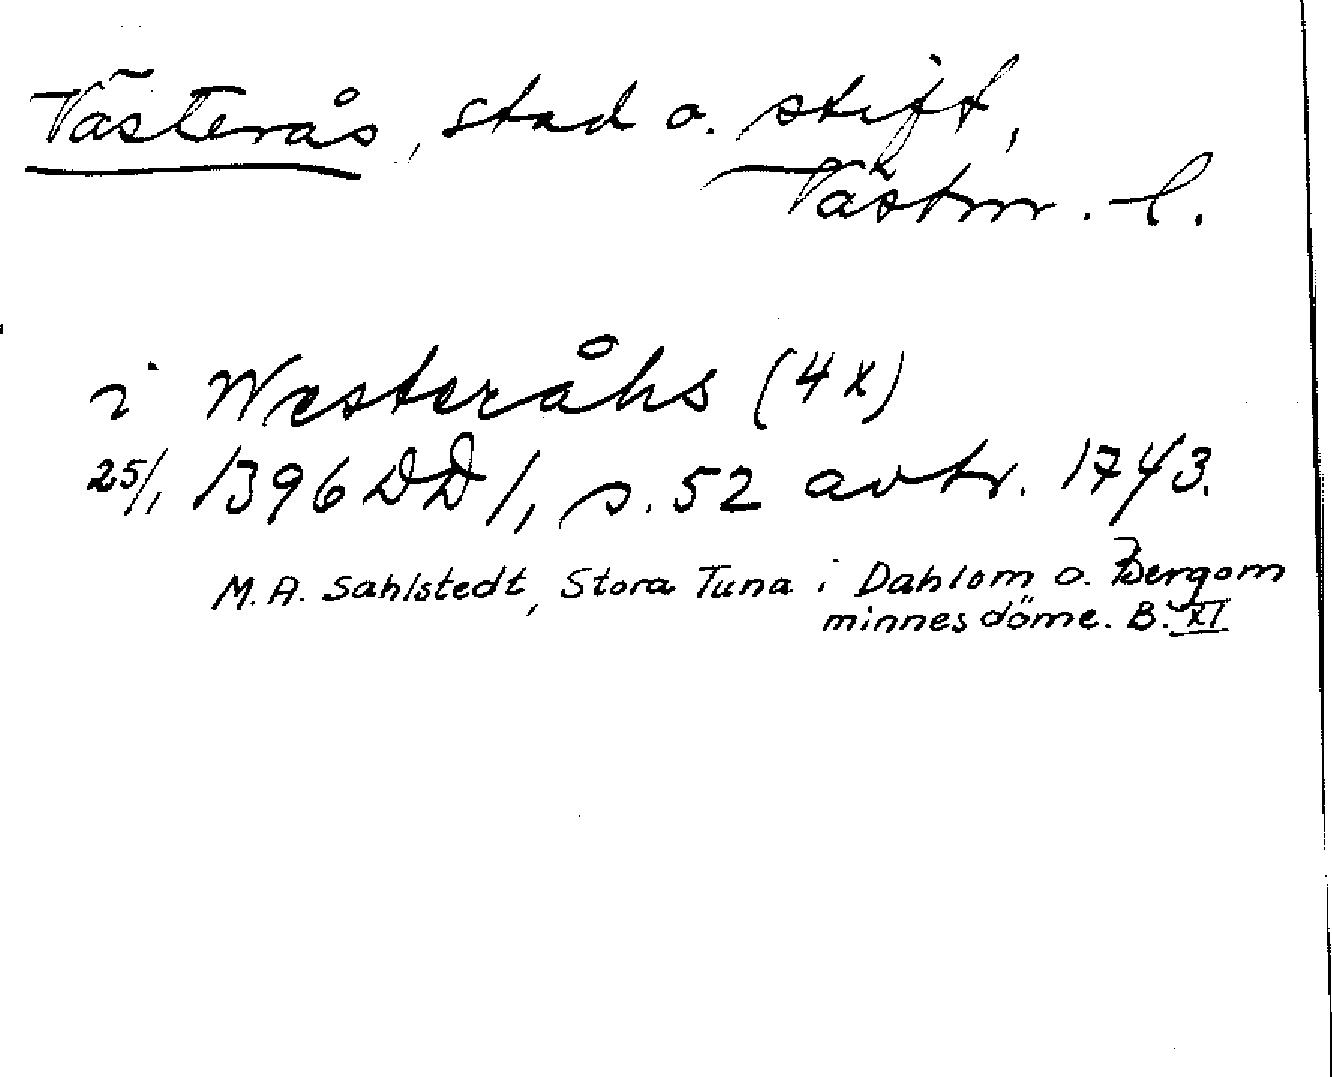 Västerås, stad o. stift,
Västm. l.
i Westeråhs (4x)
25/1 1396 DD 1, s. 52 avtr. 1743.
M.A. Sahlstedt, Stora Tuna i Dahlom o. Bergom
minnesdöme. B. XI